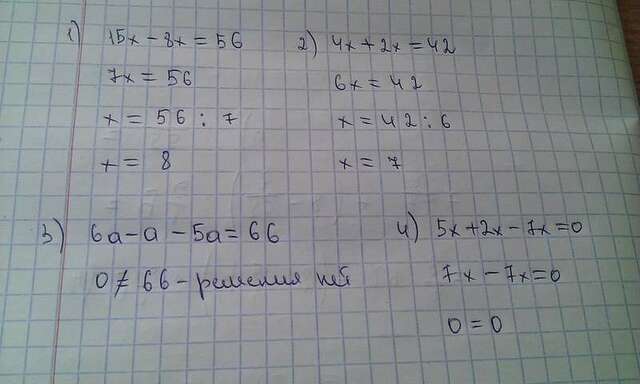 1) 15x - 8x = 56
7x = 56
x = 56 : 7
x = 8
2) 4x + 2x = 42
6x = 42
x = 42 : 6
x = 7
3) 6a - a - 5a = 66
0 ≠ 66 - решения нет
4) 5x + 2x - 7x = 0
7x - 7x = 0
0 = 0